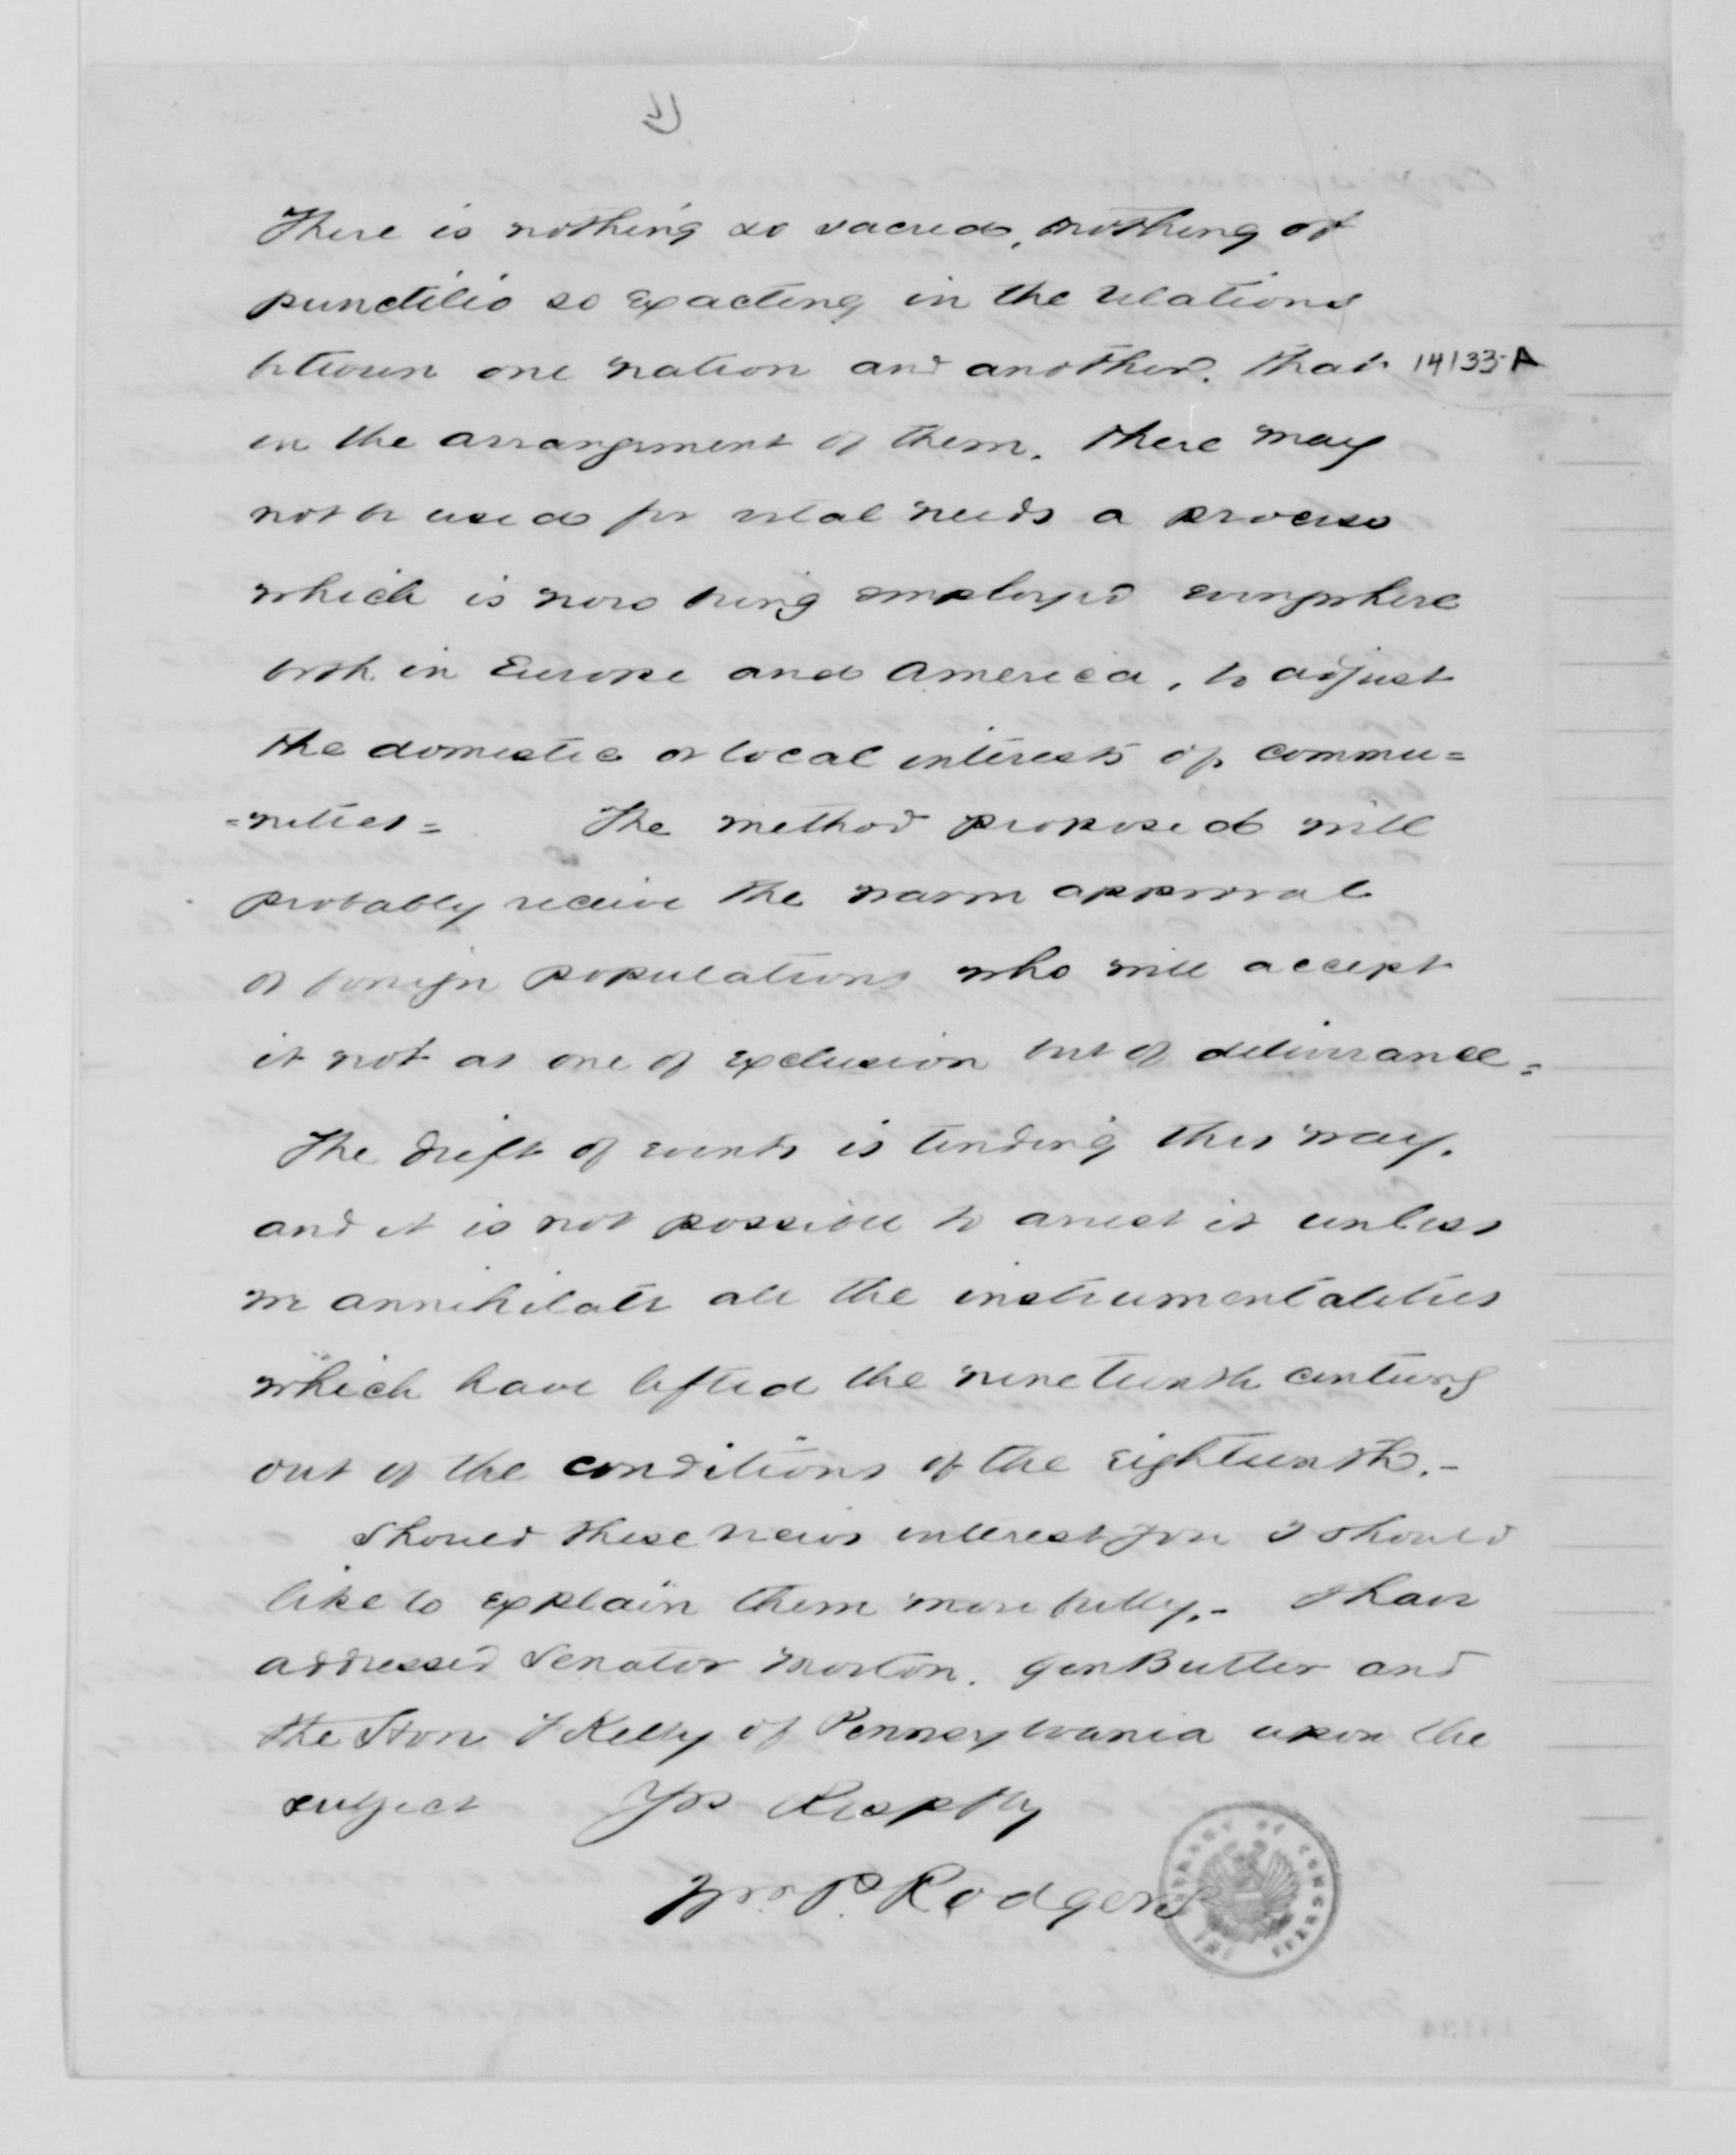 5
There is nothing so sacred, nothing of
punctilio so exacting in the relations
between one nation and another. that
14133-A
in the arrangement of them. there may
not be used for vital needs a process
which is now being employed everywhere
both in Europe and America, to adjust
the domestic or local interests of commu=
=nities= The method proposed will
probably receive the warm approval
of foreign populations who will accept
it not as one of exclusion but of deliverance=
The drift of events is tending this way.
and it is not possible to arrest it unless
we annihilate all the instrumentalities
which have lifted the nineteenth century
out of the conditions of the eighteenth.-
Should these views interest you I should
like to explain them more fully.- I have
addressed Senator Morton. Gen Butler and
the Hon Kelly of Pennsylvania upon the
subject Yrs Respfly
Wm. P. Rodgers
LIBRARY OF CONGRESS